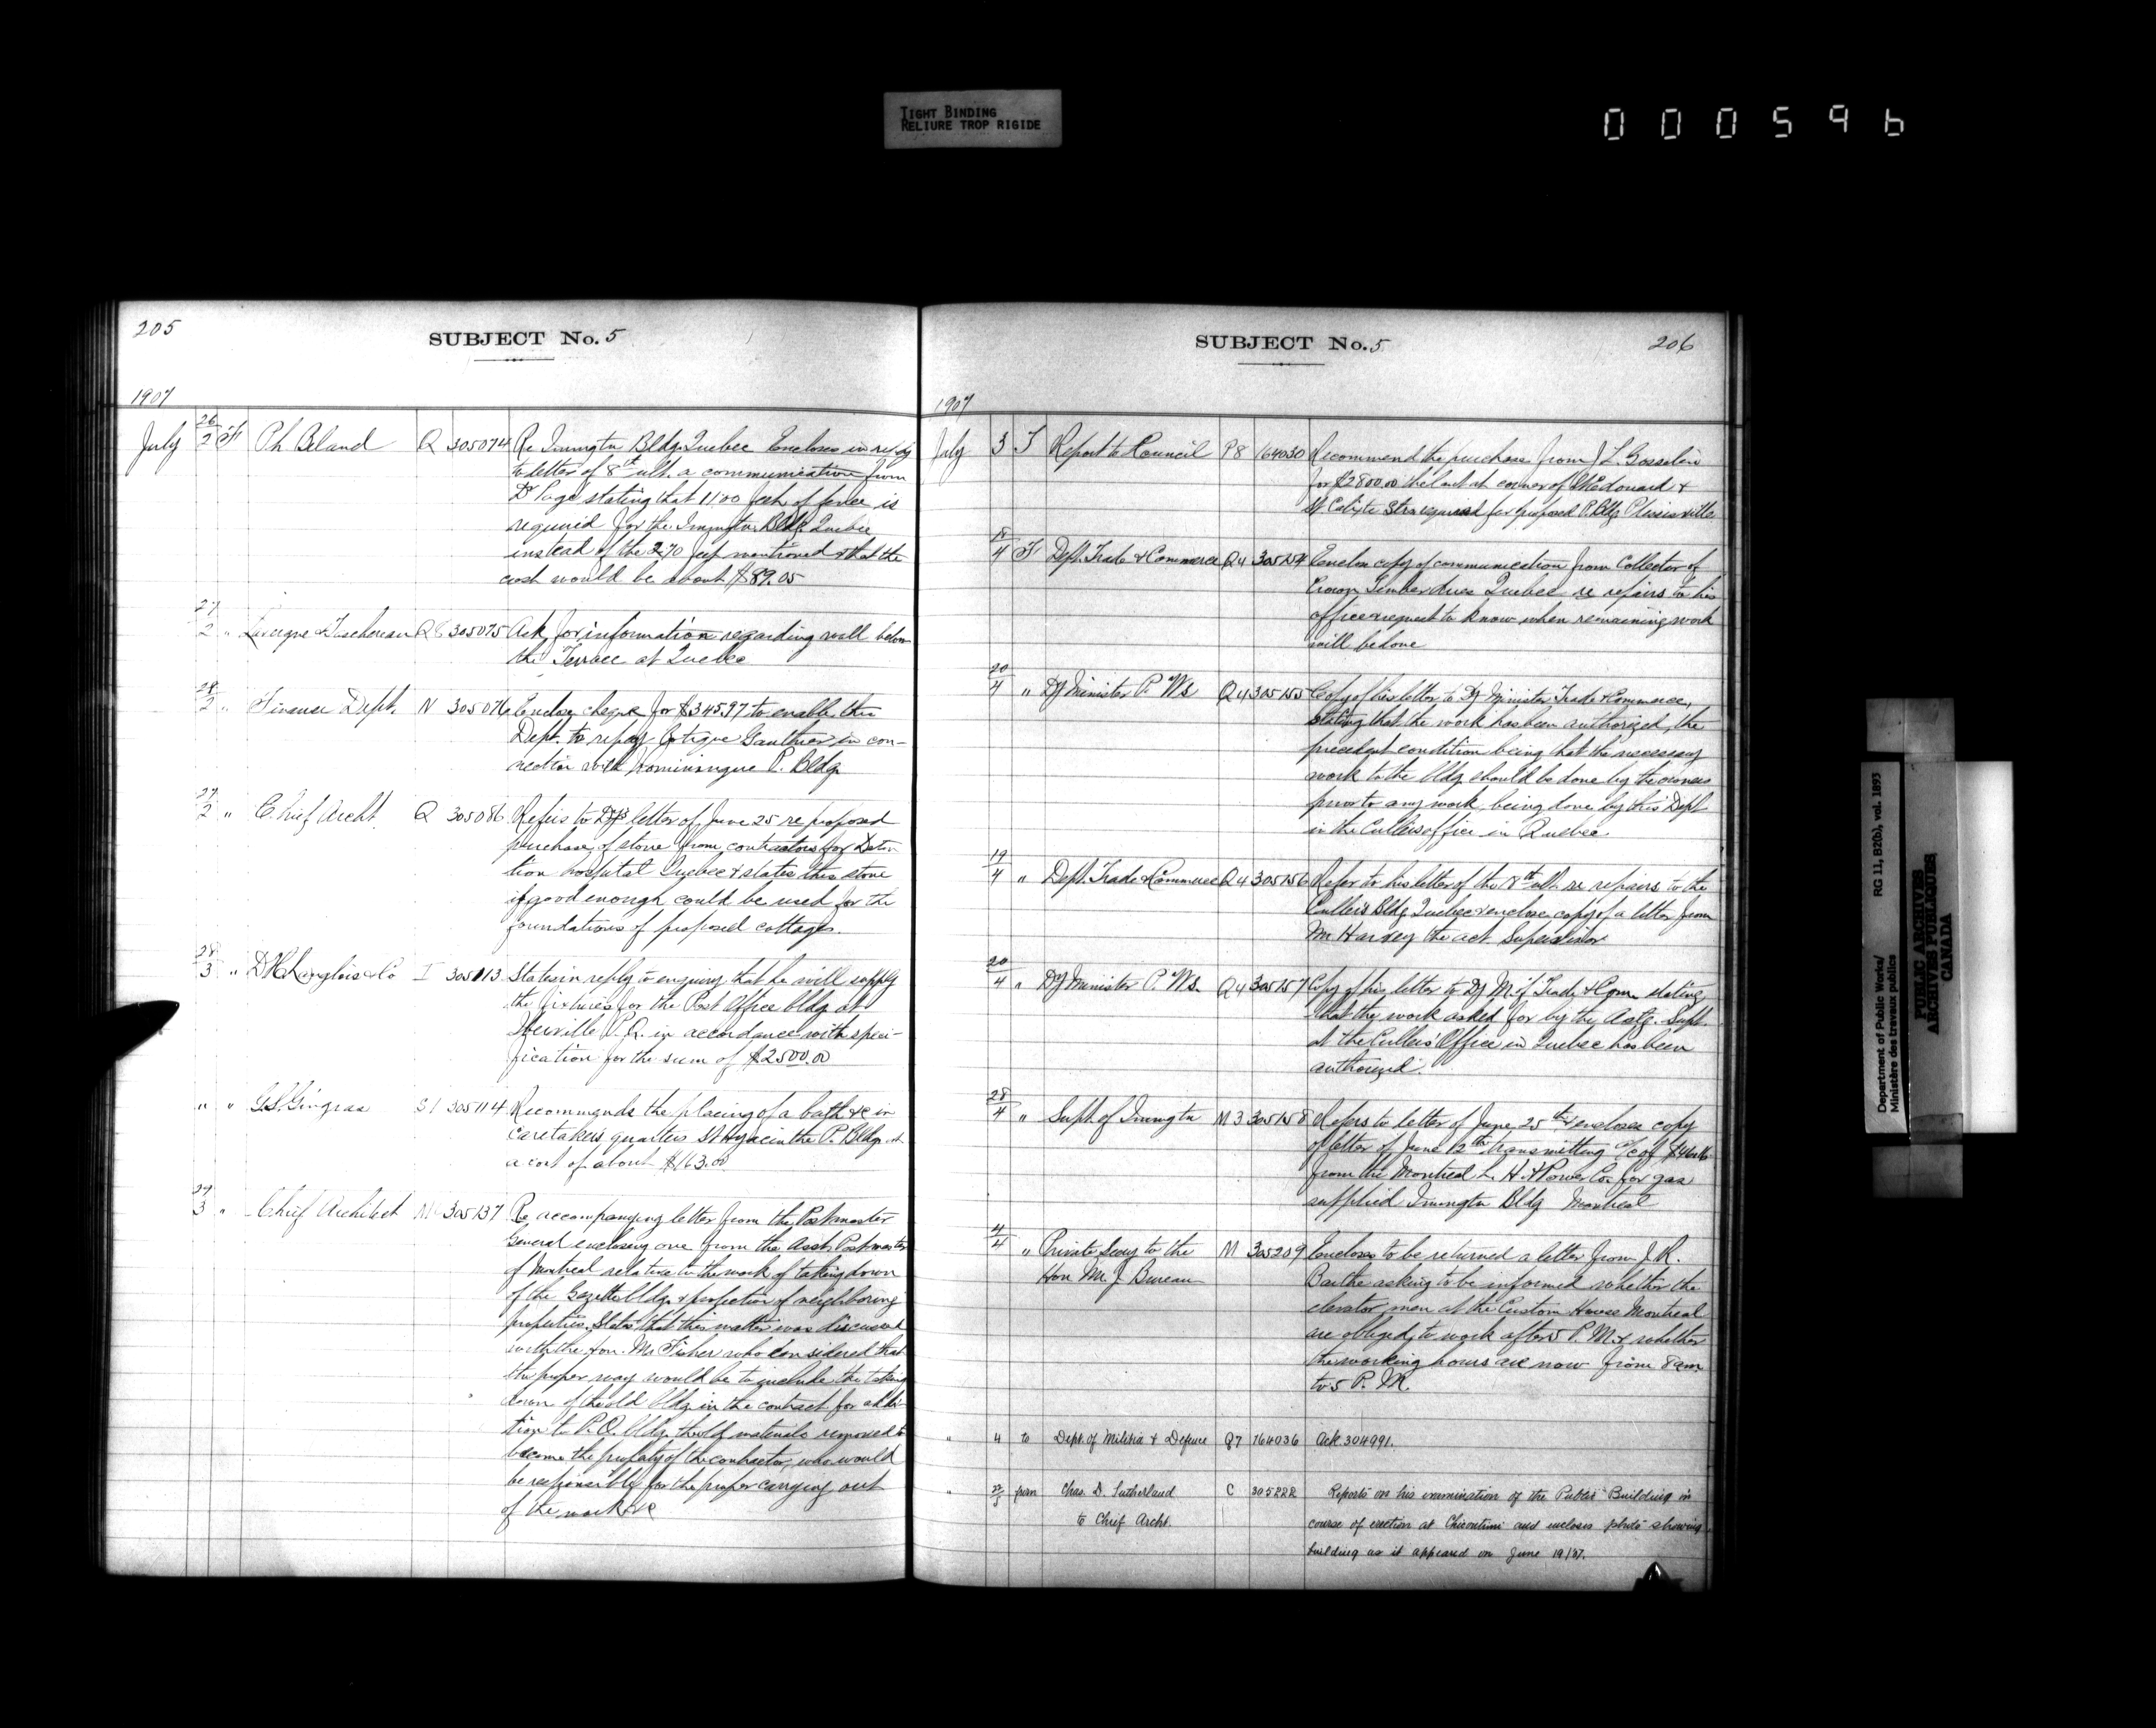 TIGHT BINDING
RELIURE TROP RIGIDE
000596
205
SUBJECT No. 5
1907
July 26/2 F Ph Beland Q 305074 Re Immgtn Bldg. Quebec Encloses in reply
to letter of 8th ult. a communication from
Dr Page stating that 1100 feet of fence is
required for the Immgtn Bldg Quebec
instead of the 270 feet mentioned & that the
cost would be about $89.05
27/2 " Lavergne & Taschereau Q8 305075 Ask for information regarding wall below
the Terrace at Quebec
28/2 " Finance Dept. N 305076 Enclose cheque for $345.97 to enable this
Dept. to repay Gauthier in con-
nection with P. Bldg
27/2 " Chief Archt. Q 305086 Refers to Dy's letter of June 25 re proposed
purchase of stone from contractors for Deten-
tion hospital Quebec & states this stone
if good enough could be used for the
foundations of proposed cottages.
28/3 " Langlois & Co I 305113 States in reply to enquiry that he will supply
the fixtures for the Post Office bldg at
Iberville P.Q. in accordance with speci-
fication for the sum of $2500.00
" " G.S. Gingras S1 305114 Recommends the placing of a bath &c in
caretaker's quarters St Hyacinthe P. Bldg at
a cost of about $163.00
29/3 " Chief Architect M 305137 Re accompanying letter from the Postmaster
General enclosing one from the Asst Postmaster
of Montreal relative to the work of taking down
of the Gazette bldg & protection of neighboring
properties. States that this matter was discussed
with the Hon. Mr Fisher who considered that
the proper way would be to include the taking
down of the old bldg in the contract for addi-
tion to P.O. bldg, the old materials removed to
become the property of the contractor, who would
be responsible for the proper carrying out
of the work &c
SUBJECT No. 5
206
1907
July 3 T Report to Council P8 164030 Recommend the purchase from J L. Gosselin
for $2800.00 the lot at corner of St Edouard &
St Calixte Strs required for proposed P. Bldg Plessisville
18/4 F Dept. Trade & Commerce Q4 305154 Enclose copy of communication from Collector of
Crown Timber dues Quebec re repairs to his
office & request to know when remaining work
will be done
20/4 " Dy Minister P. Ws Q4 305155 Copy of his letter to Dy Minister Trade & Commerce,
stating that the work has been authorized, the
precedent condition being that the necessary
work to the bldg should be done by the owners
prior to any work being done by this Dept
in the Cullers office in Quebec.
19/4 " Dept. Trade & Commerce Q4 305156 Refer to his letter of the 8th ult. re repairs to the
Cullers Bldg Quebec & enclose copy of a letter from
Mr Harvey the act. Supervisor
20/4 " Dy Minister P. Ws. Q4 305157 Copy of his letter to Dy M. of Trade & Com. stating
that the work asked for by the Actg. Supt.
at the Cullers' Office in Quebec has been
authorized.
28/4 " Supt. of Immgtn M3 305158 Refers to letter of June 25th & encloses copy
of letter of June 12th transmitting a/c of
from the Montreal L. H. & Power Co. for gas
supplied Immgtn Bldg Montreal
4/4 " Private Secy to the M 305209 Encloses to be returned a letter from J. R.
Hon Mr. J Bureau Barthe asking to be informed whether the
elevator men at the Custom House Montreal
are obliged to work after 5 P.M. & whether
the working hours are now from 8 am
to 5 P.M.
" 4 to Dept. of Militia & Defence Q7 164036 Ack. 304991.
" 22/5 from Chas. D. Sutherland C 305222 Reports on his examination of the Public Building in
to Chief Archt. course of erection at Chicoutimi and encloses photo showing
building as it appeared on June 19/07.
Department of Public Works/
Ministère des travaux publics
RG 11, B2(b), vol. 1893
PUBLIC ARCHIVES
ARCHIVES PUBLIQUES
CANADA